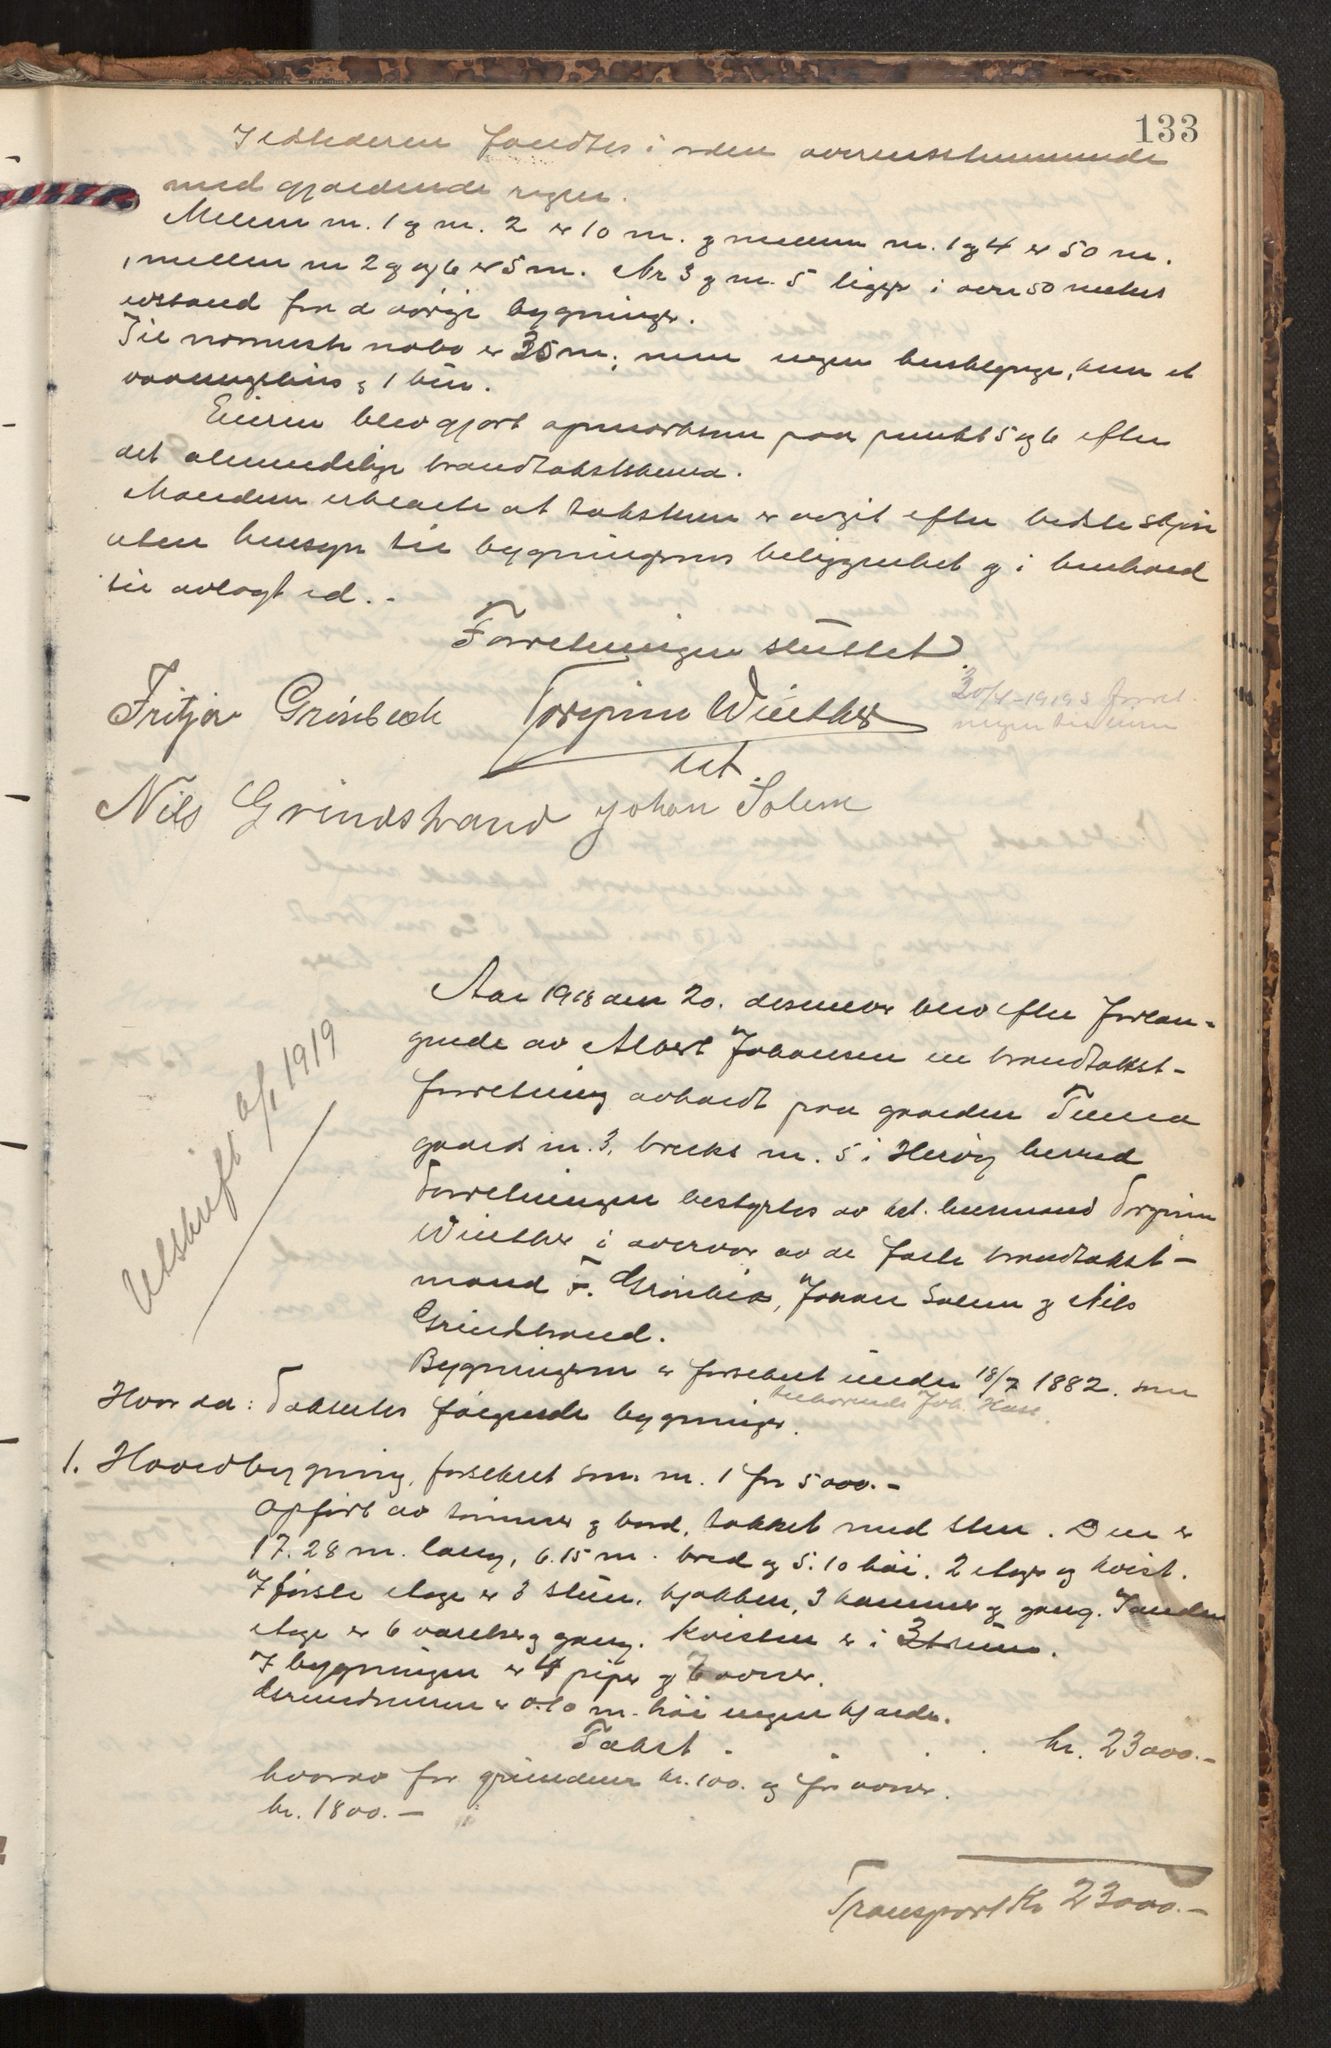 133
Ildstederne fandtes i orden overensstemmende
med gjældende regler.
Mellem nr. 1 og nr. 2 er 10 m. og mellem nr. 1 og 4 er 50 m.
mellem nr 2 og 6 er 5 m. Nr 3 og nr. 5 ligger i over 50 meters
avstand fra de øvrige bygninger.
Til nærmeste nabo er 35 m; men ingen husklynge, kun et
vaaningshus og 1 bur.
Eieren blev gjort opmerksom paa punkt 5 og 6 efter
det almindelige brandtakstskema.
Mændene erklærte at taksten er avgit efter bedste skjøn
uten hensyn til bygningernes beliggenhet og i henhold
til avlagt ed. -
Forretningen sluttet
Fritjov Grønbech Torginn Winther
Nils Grindstrand Johan Solem
Aar 1918 den 20. desember blev efter forlan-
gende av Albert Johansen en brandtakst-
forretning avholdt paa gaarden Tenna
gaards nr. 3, bruks nr. 5 i Herøy herred
Forretningen bestyrtes av kst. lensmand Torginn
Winther i overvær av de faste brandtakst-
mænd F. Grønbech, Johan Solem og Nils
Grindstrand.
Bygningerne er forsikret under 18/7 1882. som
tilhørende Joh. Hass.
Utskrift 6/1 1919
Hvorda: Taksertes følgende bygninger.
1. Hovedbygning, forsikret som nr. 1 for 5000.-
opført av tømmer og bord, tækket med sten. Den er
17.28 m. lang, 6.15 m. bred og 5.10 høi. 2 etager og kvist.
I første etage er 3 stuer, kjøkken, 3 kammer og gang. I anden
etage er 6 værelser og gang. Kvisten er i 3
I bygningen er 4 piper og 7 ovner.
Grundmuren er 0.10 m. høi ingen kjælder.
Takst - kr. 23000.-
hvorav for grunden kr. 100. og for ovner
kr. 1800.-
Transport Kr 23000.-